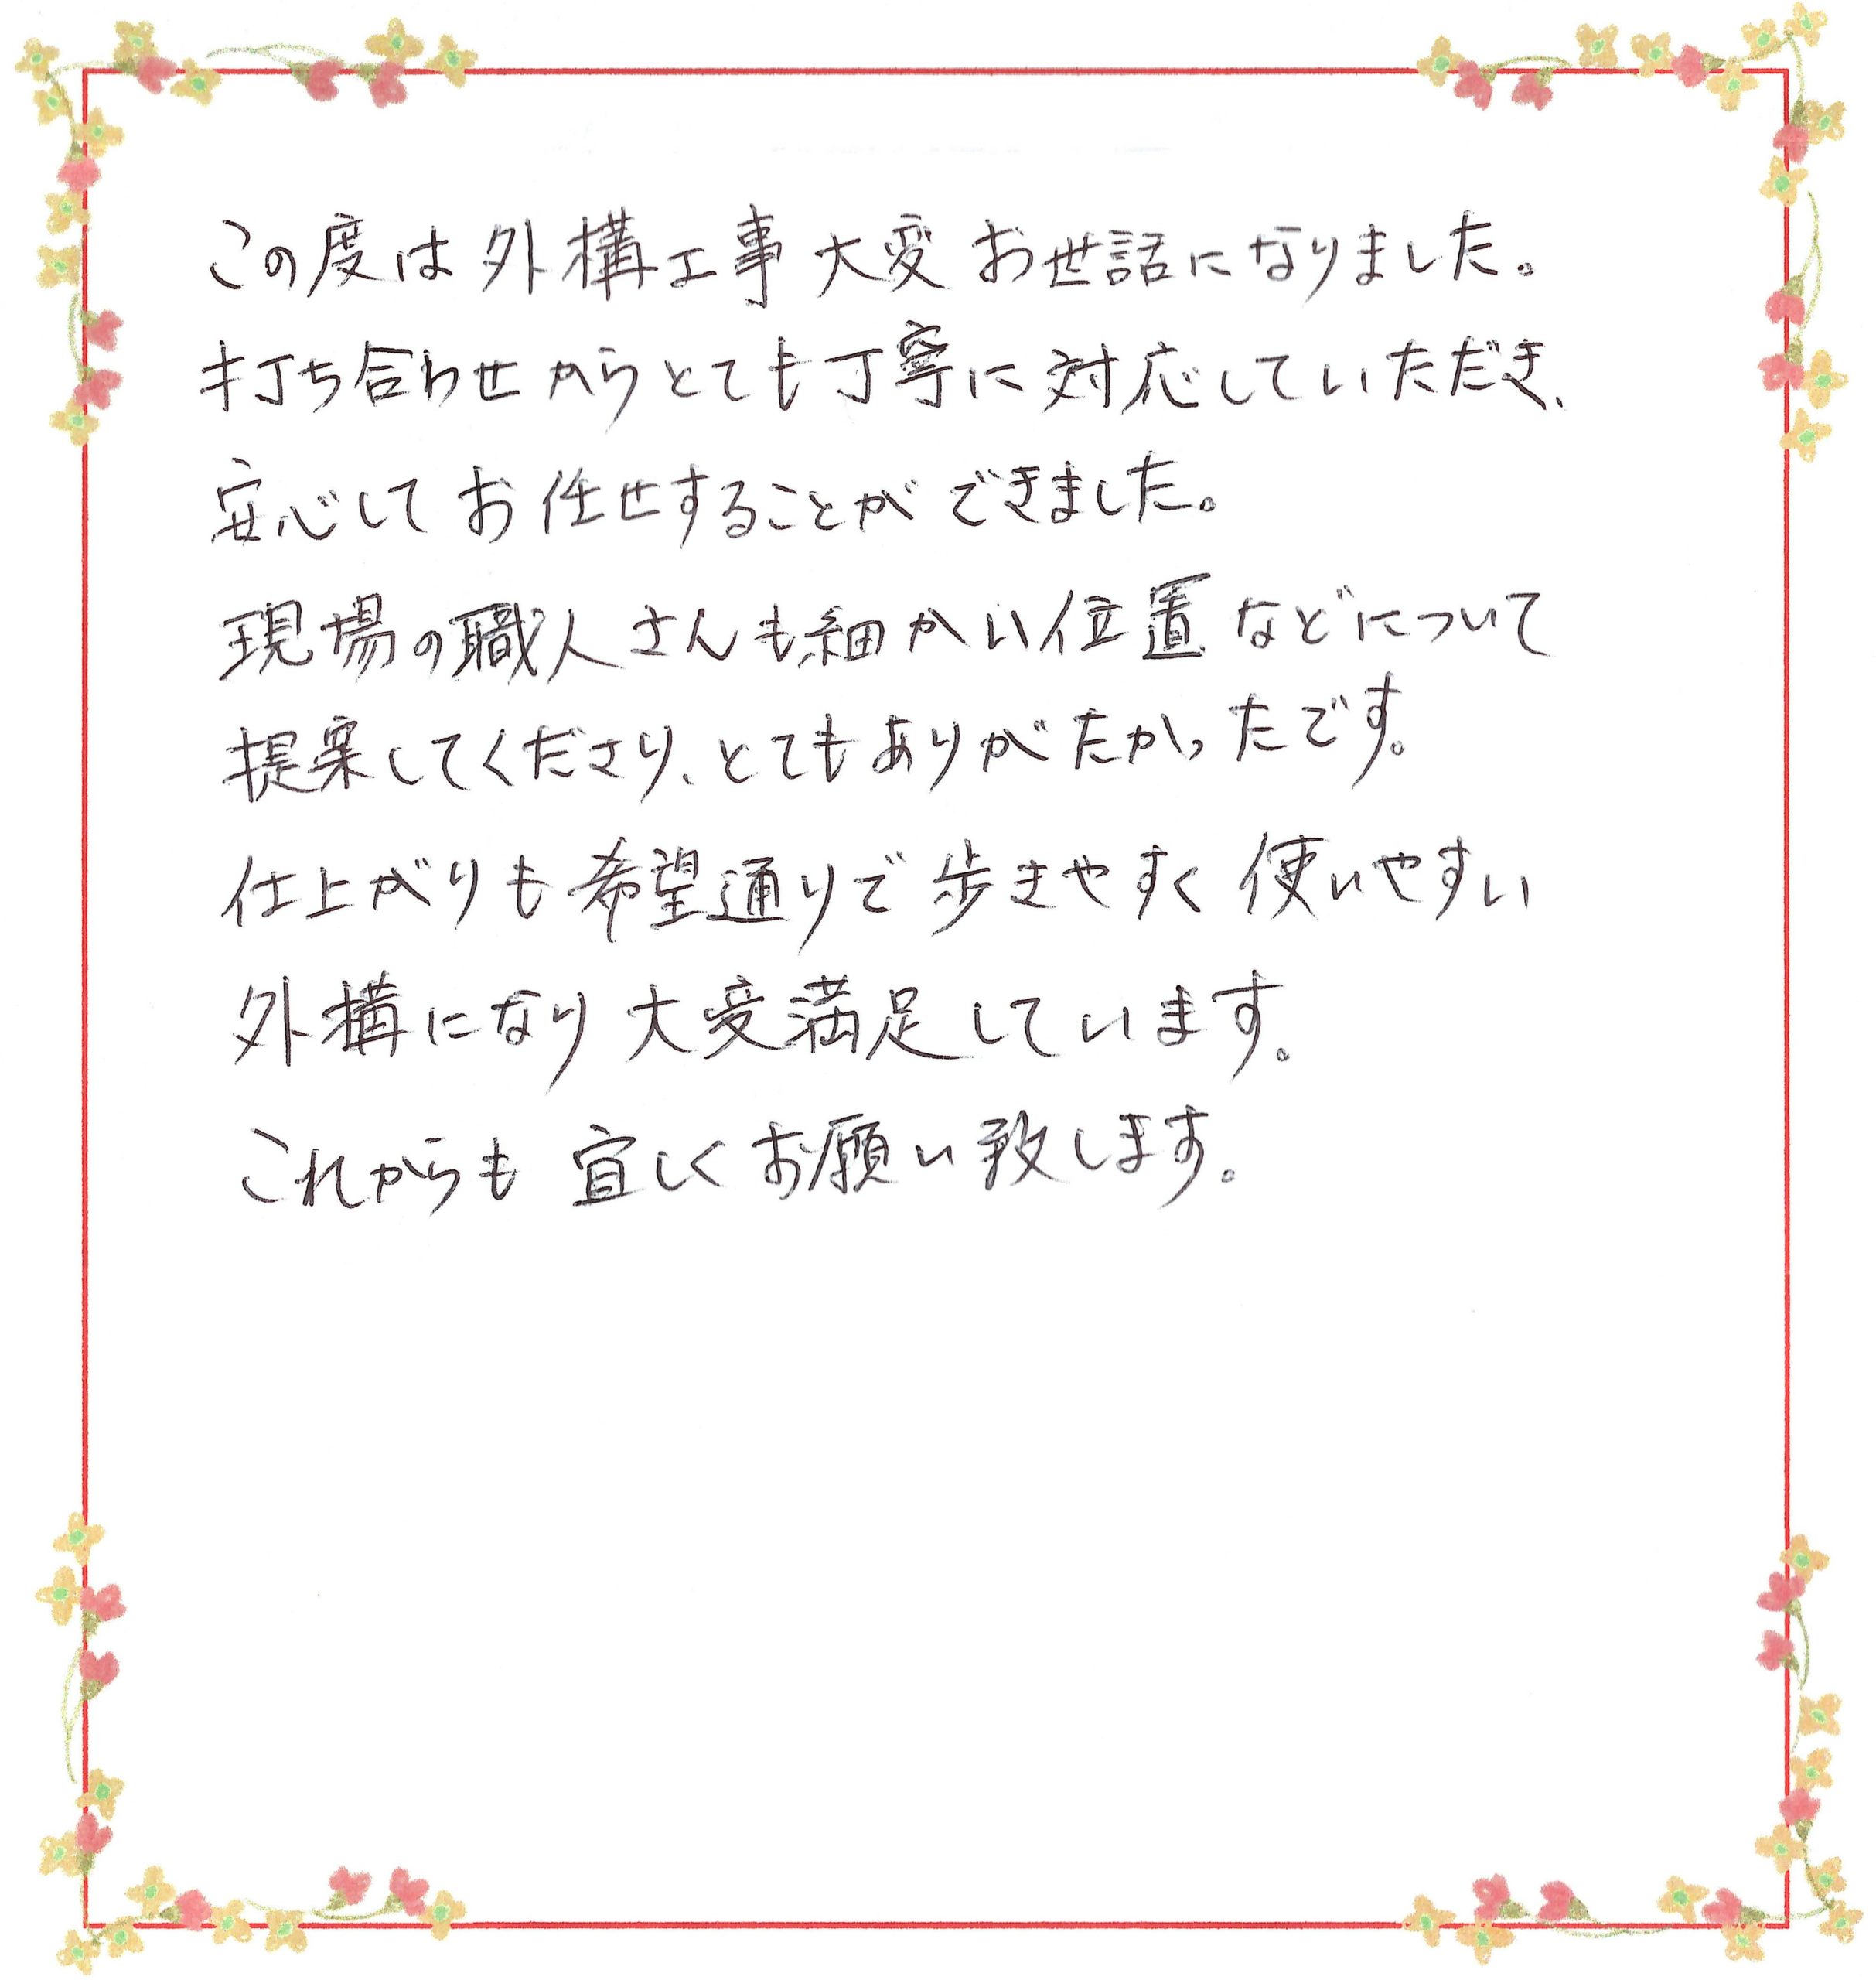 この度は外構工事大変お世話になりました。
打ち合わせからとても丁寧に対応していただき、
安心してお任せすることができました。
現場の職人さんも細かい位置などについて
提案してくださり、とてもありがたかったです。
仕上がりも希望通りで歩きやすく使いやすい
外構になり大変満足しています。
これからも宜しくお願い致します。